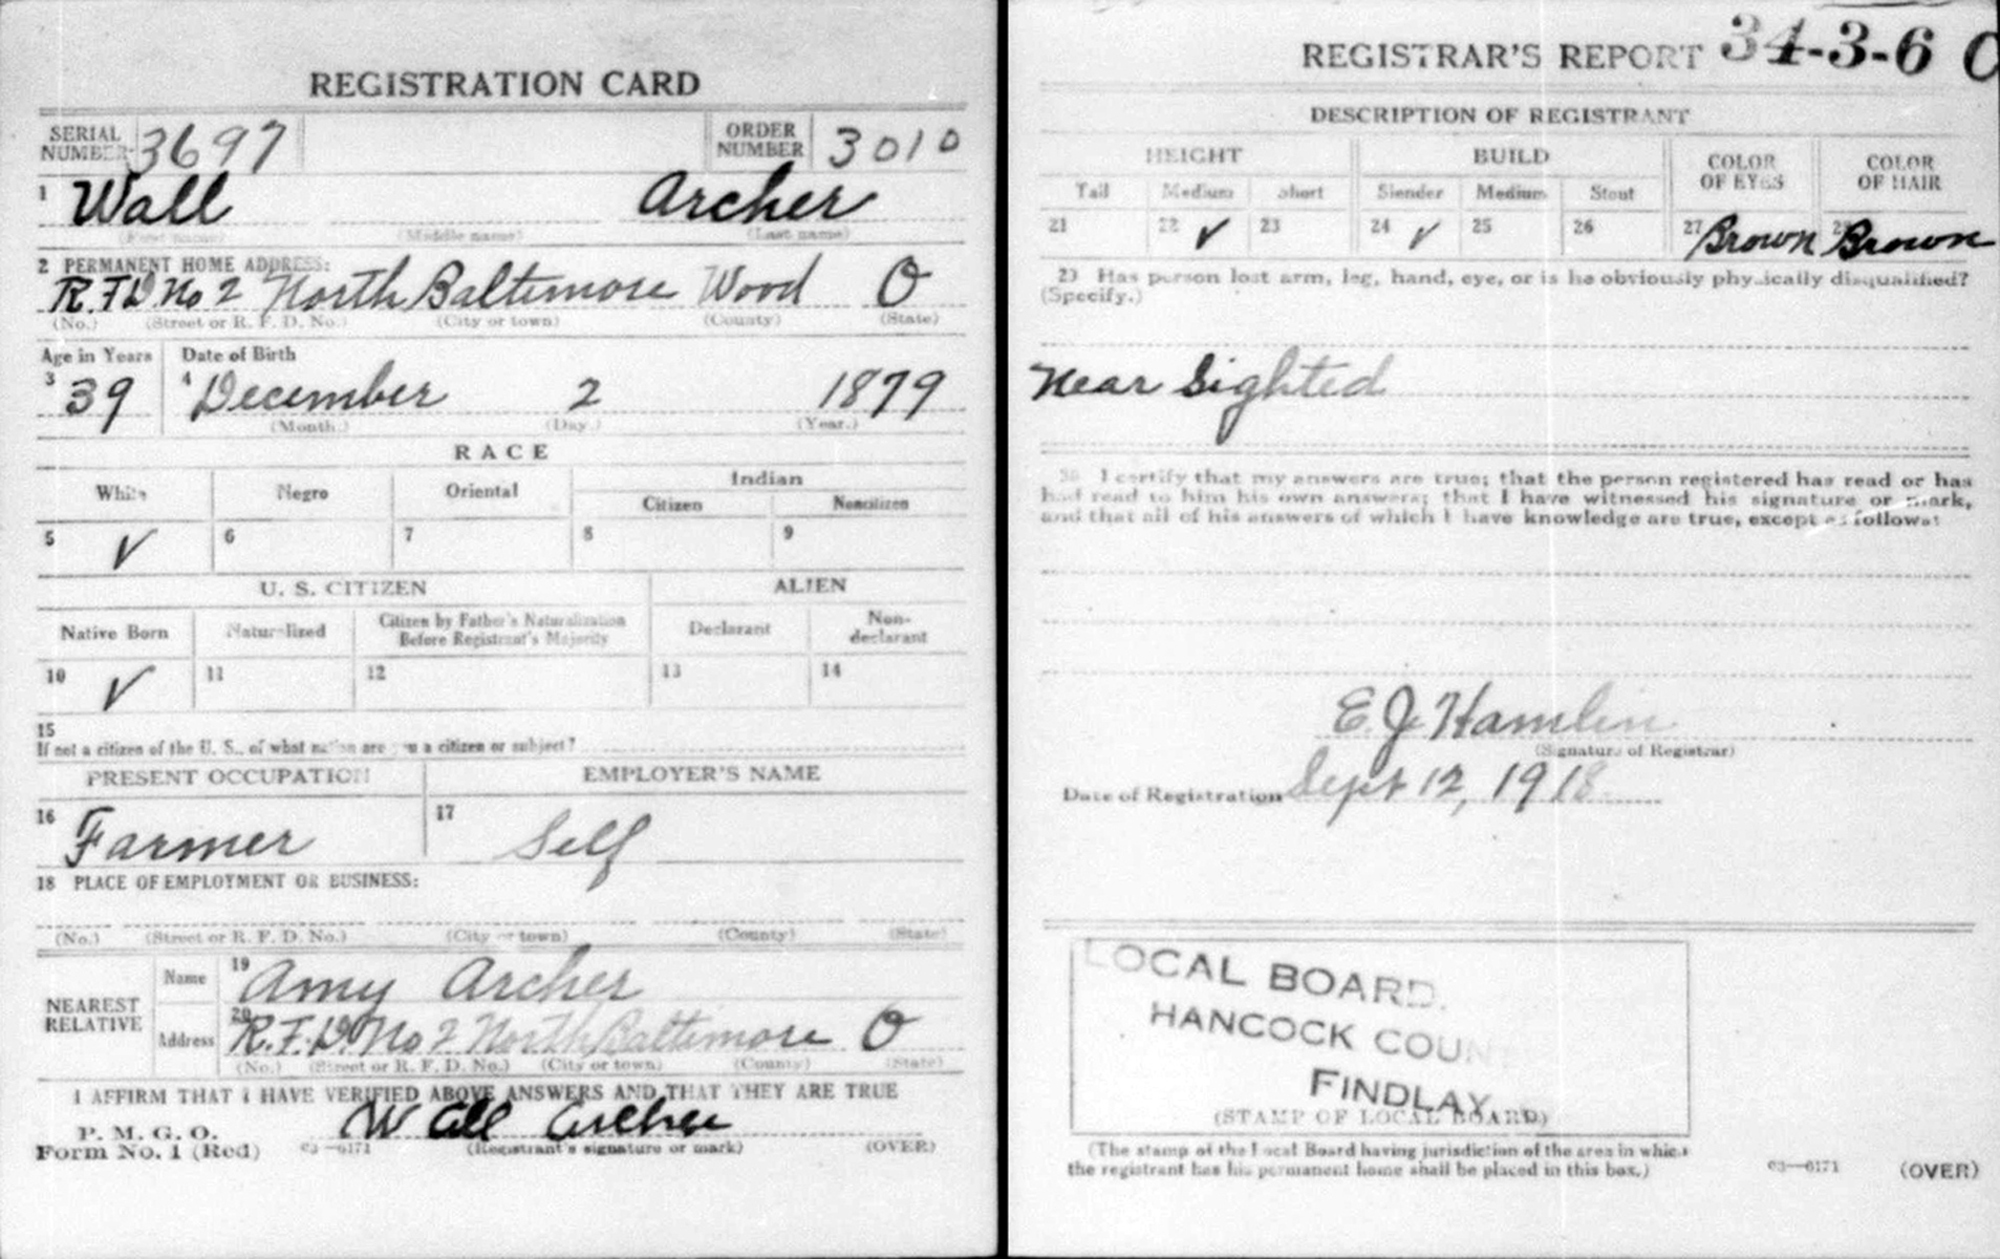 REGISTRATION CARD
SERIAL NUMBER 3697 ORDER NUMBER 3010
1 Wall Archer
(First name) (Middle name) (Last name)
2 PERMANENT HOME ADDRESS:
R.F.D No 2 North Baltimore Wood O
(No.) (Street or R. F. D. No.) (City or town) (County) (State)
Age in Years Date of Birth
3 39 4 December 2 1879
(Month.) (Day.) (Year.)
RACE
White Negro Oriental Indian
Citizen Noncitizen
5 ✓ 6 7 8 9
U. S. CITIZEN ALIEN
Native Born Naturalized Citizen by Father's Naturalization Before Registrant's Majority Declarant Non-declarant
10 ✓ 11 12 13 14
15
If not a citizen of the U. S., of what nation are you a citizen or subject?
PRESENT OCCUPATION EMPLOYER'S NAME
16 Farmer 17 Self
18 PLACE OF EMPLOYMENT OR BUSINESS:
(No.) (Street or R. F. D. No.) (City or town) (County) (State)
NEAREST RELATIVE Name 19 Amy Archer
Address 20 R.F.D. No 2 North Baltimore O
(No.) (Street or R. F. D. No.) (City or town) (County) (State)
I AFFIRM THAT I HAVE VERIFIED ABOVE ANSWERS AND THAT THEY ARE TRUE
P. M. G. O.
Form No. 1 (Red) 03—6171 Wall Archer (Registrant's signature or mark) (OVER)
REGISTRAR'S REPORT 34-3-6 C
DESCRIPTION OF REGISTRANT
HEIGHT BUILD COLOR OF EYES COLOR OF HAIR
Tall Medium Short Slender Medium Stout
21 22 ✓ 23 24 ✓ 25 26 27 Brown 28 Brown
29 Has person lost arm, leg, hand, eye, or is he obviously physically disqualified?
(Specify.)
Near Sighted
30 I certify that my answers are true; that the person registered has read or has
had read to him his own answers; that I have witnessed his signature or mark,
and that all of his answers of which I have knowledge are true, except as follows:
E. J. Hamlin
(Signature of Registrar)
Date of Registration Sept 12, 1918
LOCAL BOARD.
HANCOCK COUN
FINDLAY
(STAMP OF LOCAL BOARD)
(The stamp of the Local Board having jurisdiction of the area in which
the registrant has his permanent home shall be placed in this box.)
03—6171 (OVER)